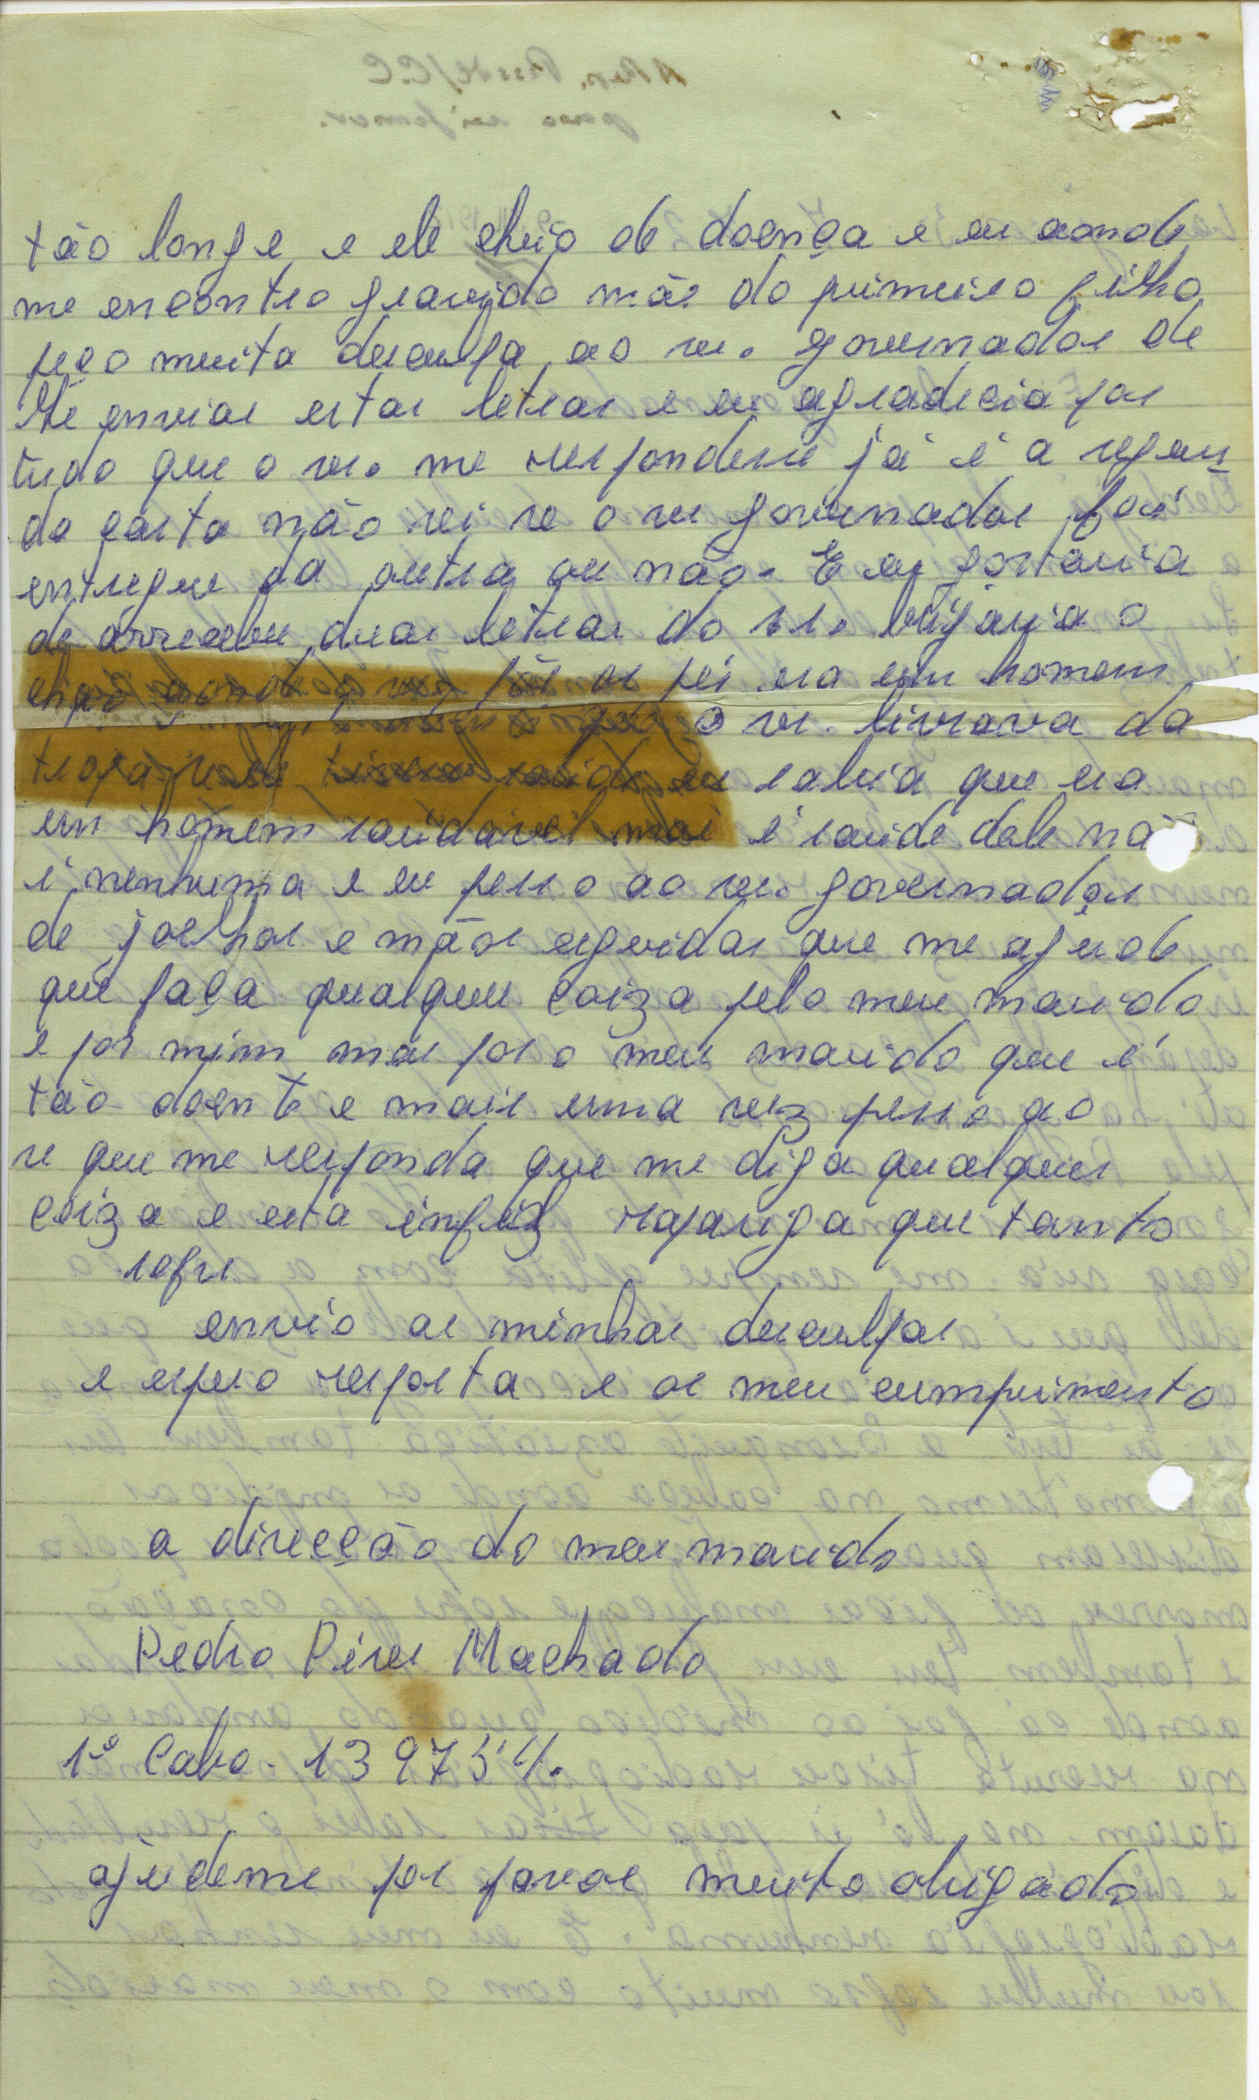 tão longe e ele cheio de doença e eu aonde
me encontro gravida mãe do primeiro filho
peço muita desculpa ao sr. governador de
lhe enviar estas letras e eu agradecia por
tudo que o sr. me respondese já é a segun
da carta não sei se o sr governador foi
entregue da outra ou não. E eu gostaria
de arreceber duas letras do sr. bijaria o
chão aonde o sr. pôe os pés era um homem
o sr. livrava da
tropa eu sabia que era
um homem saudavel mas é saude dele não
é nenhuma e eu pesso ao sr. governador
de joelhos e mãos erguidas que me ajude
que faça qualquer coiza pelo meu marido
e por mim mas por o meu marido que é
tão doente e mais uma vez pesso ao
sr que me responda que me diga qualquer
coiza e esta infeliz rapariga que tanto
sofre
envio as minhas desculpas
e espero resposta e os meu cumprimento
a direcção do meu marido
Pedro Pires Machado
1º Cabo - 13 975 4.
ajudeme por favor muito obrigado